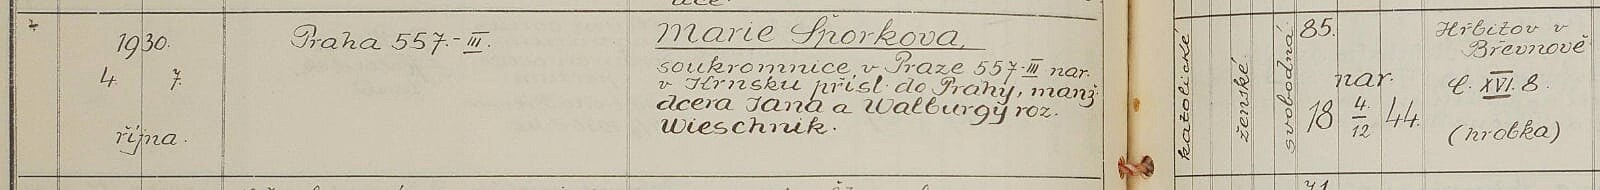 1930.
4 7.
října.
Praha 557.-III.
Marie Šporkova,
soukromnice, v Praze 557-III nar.
v Krnsku přísl. do Prahy, manž.
dcera Jana a Walburgy roz.
Wieschnik.
katolické
ženské
svobodná
85.
nar.
18 4/12 44.
Hřbitov v
Břevnově
č. XVI. 8.
(hrobka)